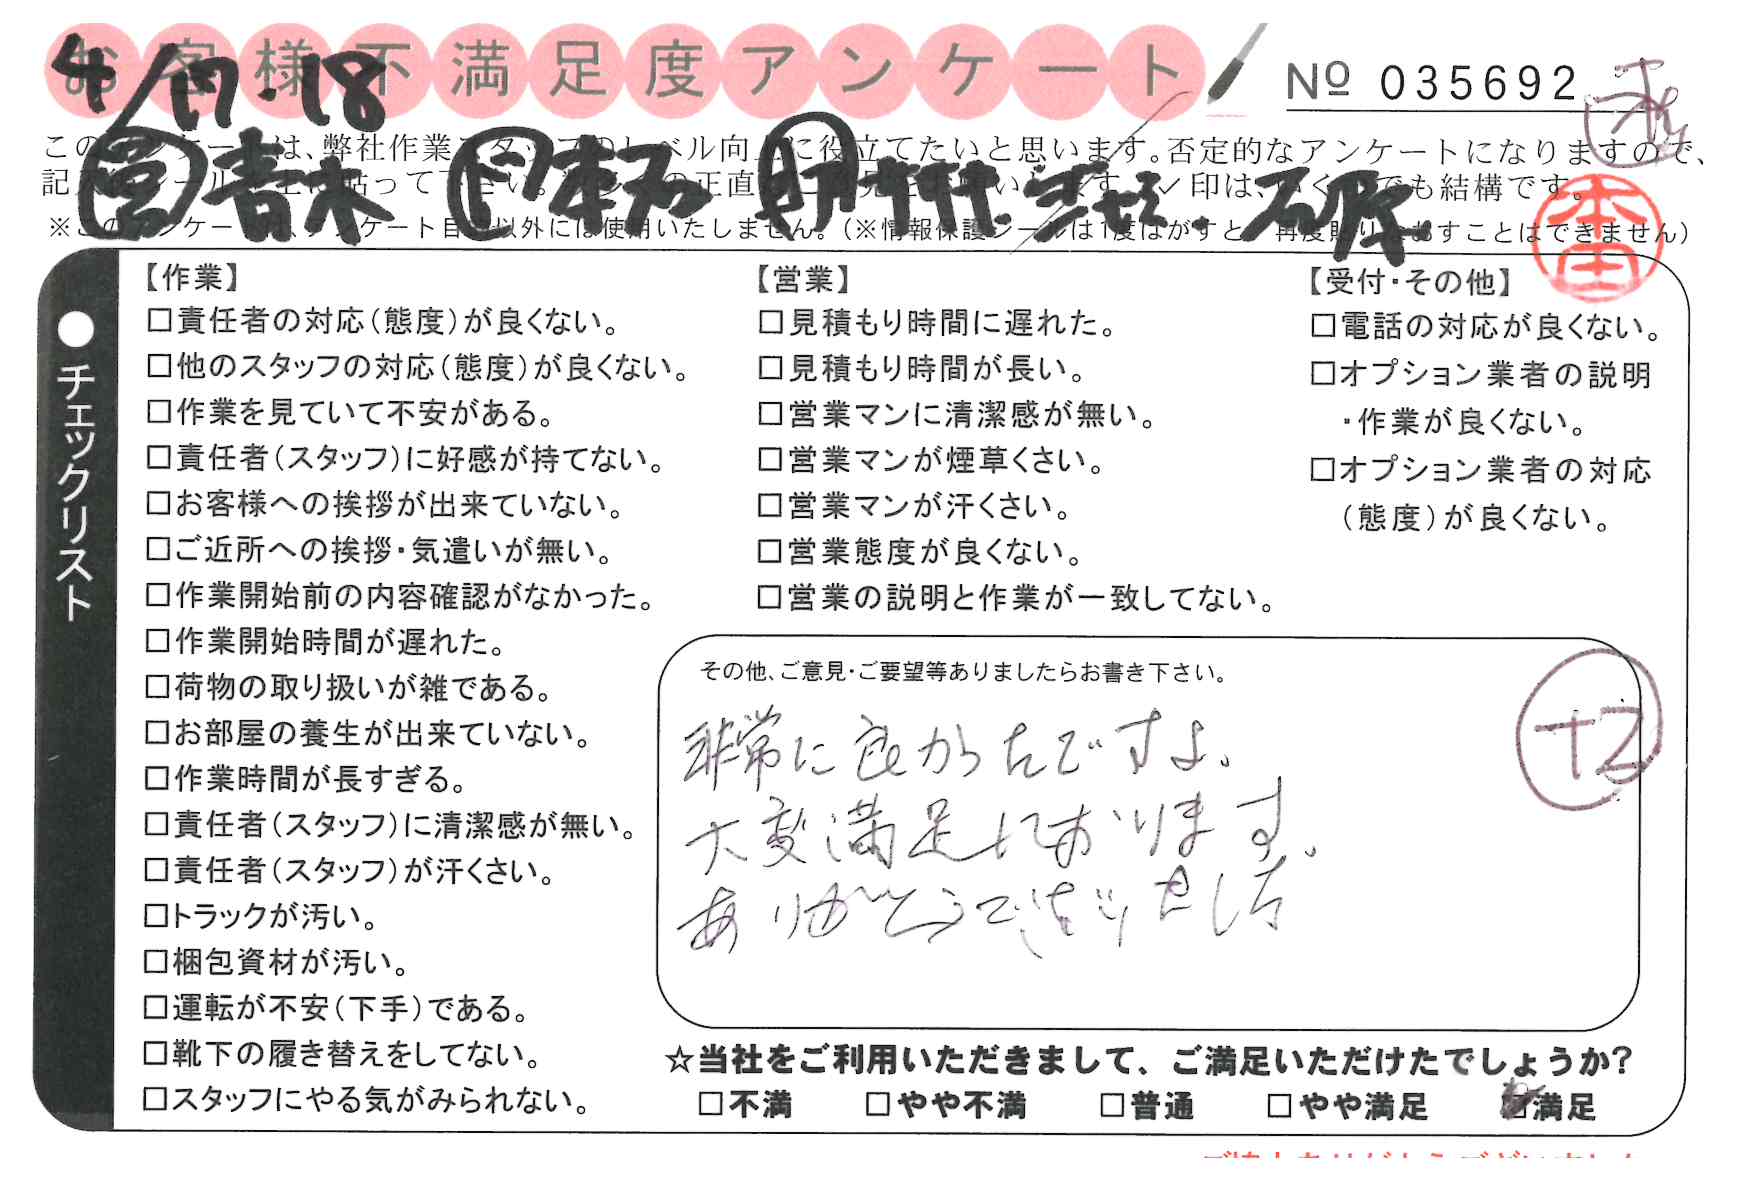 お客様不満足度アンケート
№ 035692
4/17・18
このアンケートは、弊社作業スタッフのレベル向上に役立てたいと思います。否定的なアンケートになりますので、
青木
正直 印は、いくつでも結構です。
※このアンケートは、アンケート目的以外には使用いたしません。(※情報保護シールは1度はがすと、再度貼りなおすことはできません)
●チェックリスト
【作業】
□責任者の対応(態度)が良くない。
□他のスタッフの対応(態度)が良くない。
□作業を見ていて不安がある。
□責任者(スタッフ)に好感が持てない。
□お客様への挨拶が出来ていない。
□ご近所への挨拶・気遣いが無い。
□作業開始前の内容確認がなかった。
□作業開始時間が遅れた。
□荷物の取り扱いが雑である。
□お部屋の養生が出来ていない。
□作業時間が長すぎる。
□責任者(スタッフ)に清潔感が無い。
□責任者(スタッフ)が汗くさい。
□トラックが汚い。
□梱包資材が汚い。
□運転が不安(下手)である。
□靴下の履き替えをしてない。
□スタッフにやる気がみられない。
【営業】
□見積もり時間に遅れた。
□見積もり時間が長い。
□営業マンに清潔感が無い。
□営業マンが煙草くさい。
□営業マンが汗くさい。
□営業態度が良くない。
□営業の説明と作業が一致してない。
【受付・その他】
□電話の対応が良くない。
□オプション業者の説明
・作業が良くない。
□オプション業者の対応
(態度)が良くない。
その他、ご意見・ご要望等ありましたらお書き下さい。
非常に良かったですよ。
大変満足しております。
ありがとうございました
+2
☆当社をご利用いただきまして、ご満足いただけたでしょうか?
□不満 □やや不満 □普通 □やや満足 ☑満足